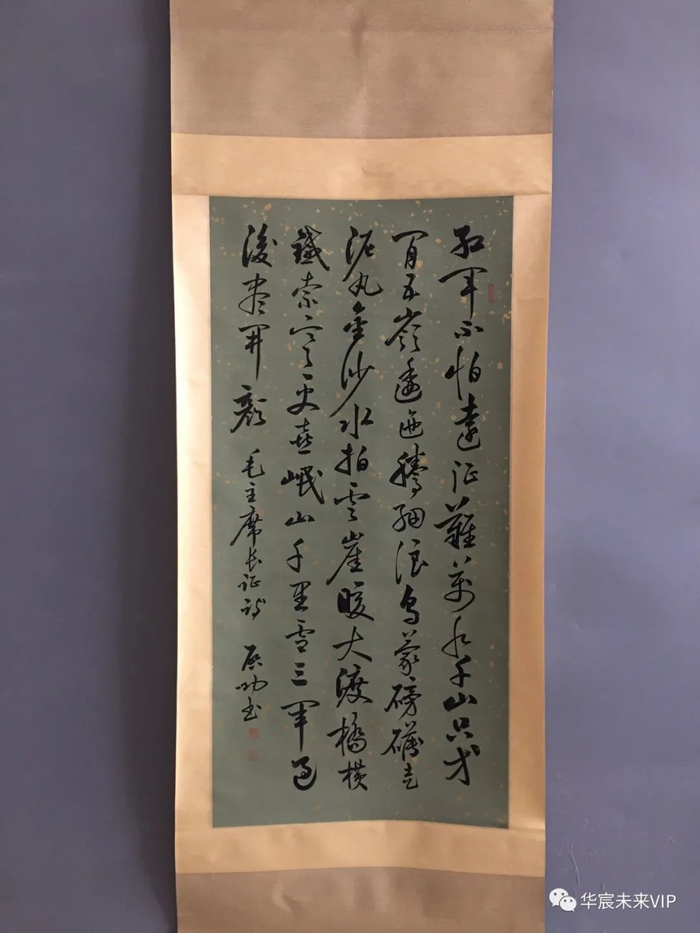 红军不怕遠征難萬水千山只等
闲五嶺逶迤騰细浪乌蒙磅礴走
泥丸金沙水拍雲崖暖大渡橋横
鐵索寒更喜岷山千里雪三軍過
後盡開顏 毛主席长征诗 启功书
华宸未来VIP